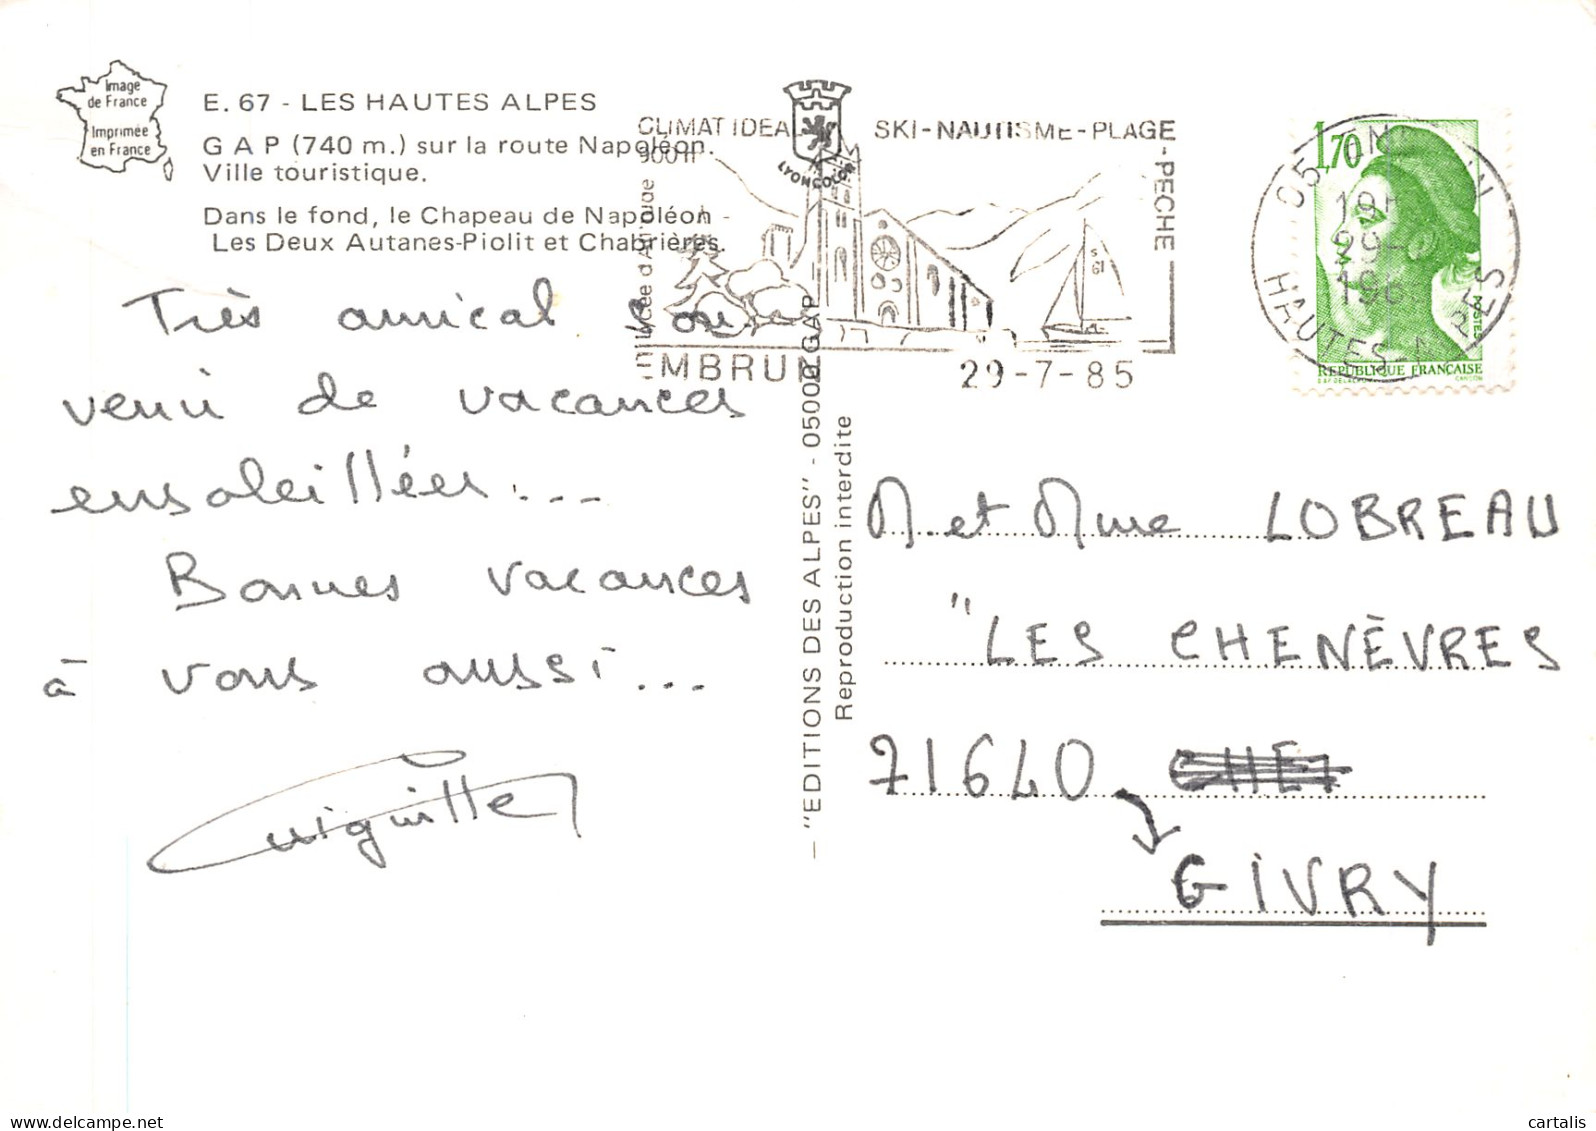 Image
de France
Imprimée
en France
E. 67 - LES HAUTES ALPES
GAP (740 m.) sur la route Napoléon.
Ville touristique.
Dans le fond, le Chapeau de Napoléon -
Les Deux Autanes-Piolit et Chabrières.
Très amical sou
venir de vacances
ensoleillées...
Bonnes vacances
à vous aussi...
LYONCOLOR
CLIMAT IDEAL
SKI-NAUTISME-PLAGE
-PECHE
EMBRUN
29-7-85
"EDITIONS DES ALPES" - 05000 GAP
Reproduction interdite
1,70
POSTES
REPUBLIQUE FRANÇAISE
HAUTES-ALPES
M et Mme LOBREAU
"LES CHENÈVRES
71640
GIVRY
cartalis